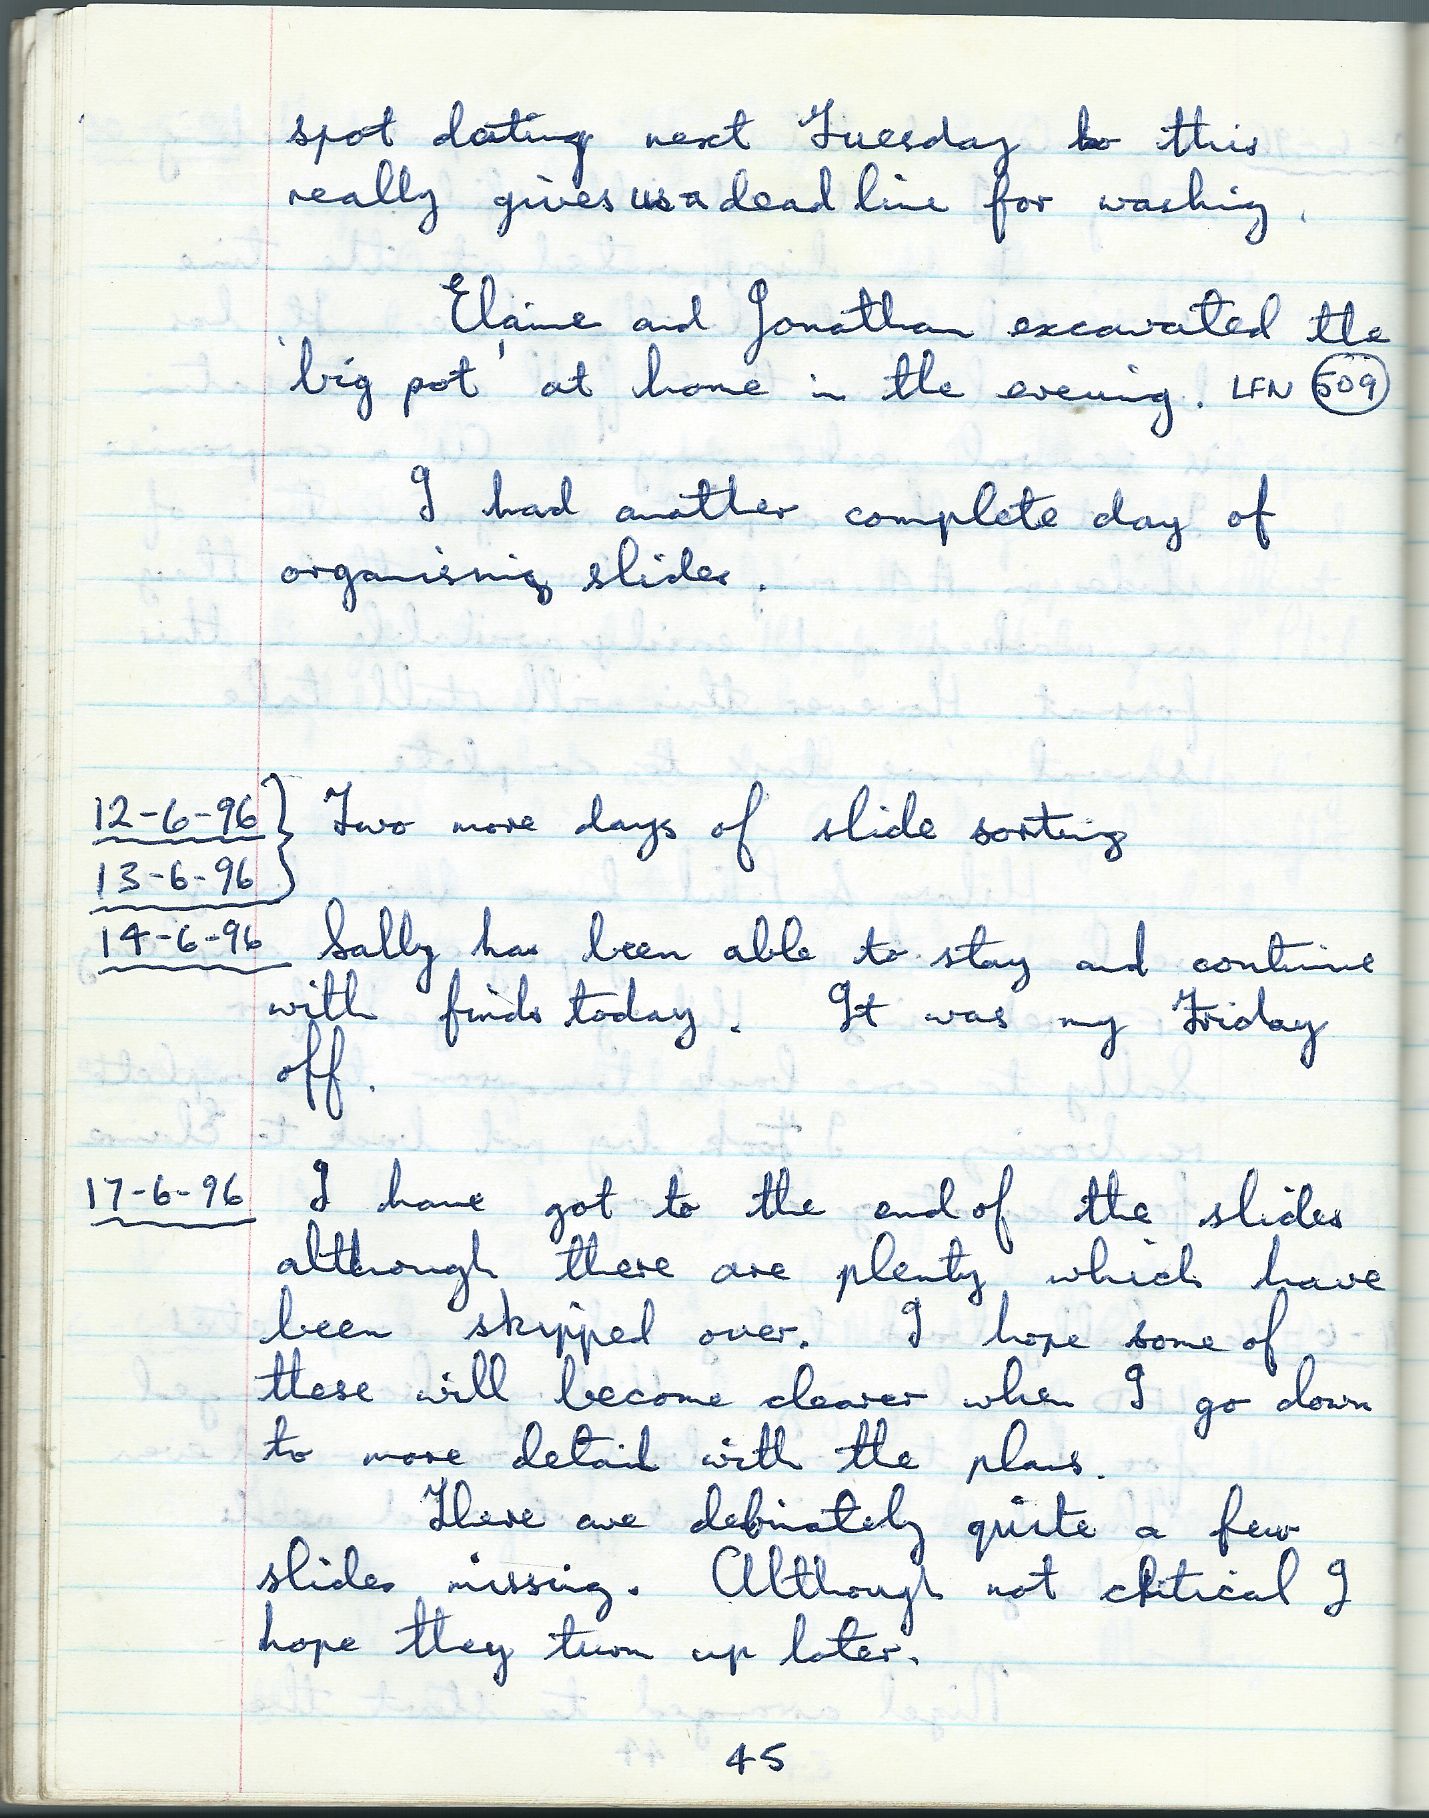 spot dating next Tuesday so this
really gives us a dead line for washing.
Elaine and Jonathan excavated the
'big pot' at home in the evening. LFN 509
I had another complete day of
organising slides.
12-6-96 Two more days of slide sorting
13-6-96
14-6-96 Sally has been able to stay and continue
with finds today. It was my Friday
off.
17-6-96 I have got to the end of the slides
although there are plenty which have
been skipped over. I hope some of
these will become clearer when I go down
to more detail with the plans.
There are definately quite a few
slides missing. Although not critical I
hope they turn up later.
45